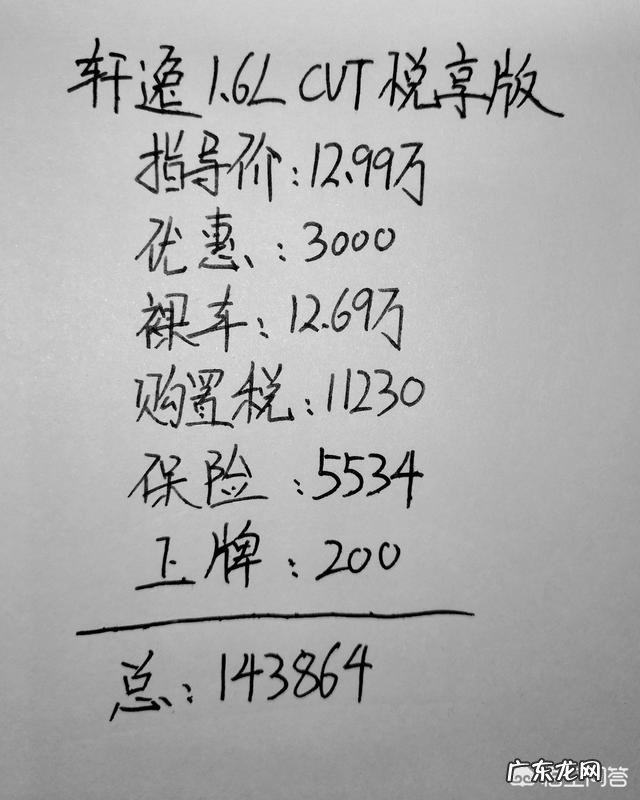 轩逸1.6L CVT 悦享版
指导价：12.99万
优惠：3000
裸车：12.69万
购置税：11230
保险：5534
上牌：200
总：143864
广东龙网
悟空问答